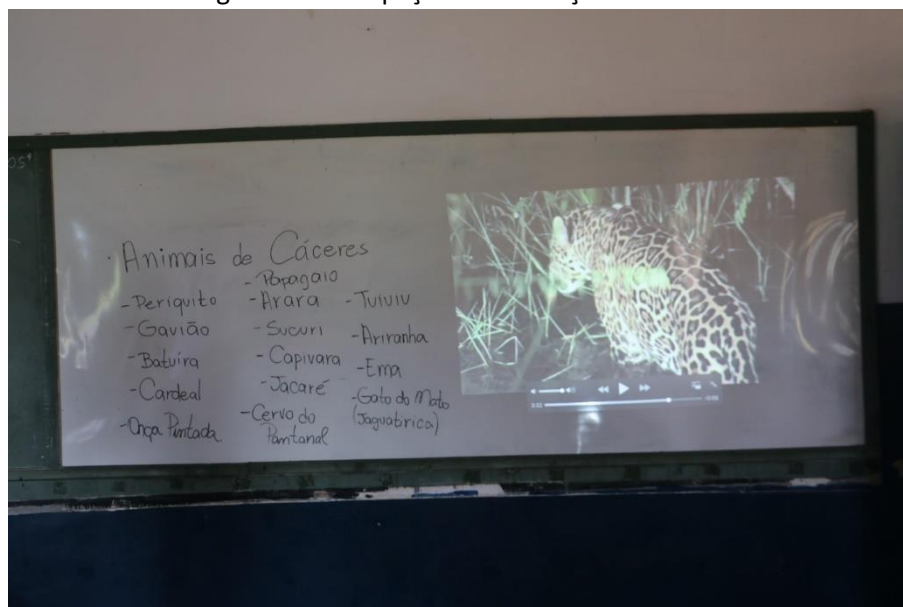 Animais de Cáceres
- Periquito
- Gavião
- Batuíra
- Cardeal
- Onça Pintada
- Papagaio
- Arara
- Sucuri
- Capivara
- Jacaré
- Cervo do
Pantanal
- Tuiuiu
- Ariranha
- Ema
- Gato do Mato
(Jaguatirica)